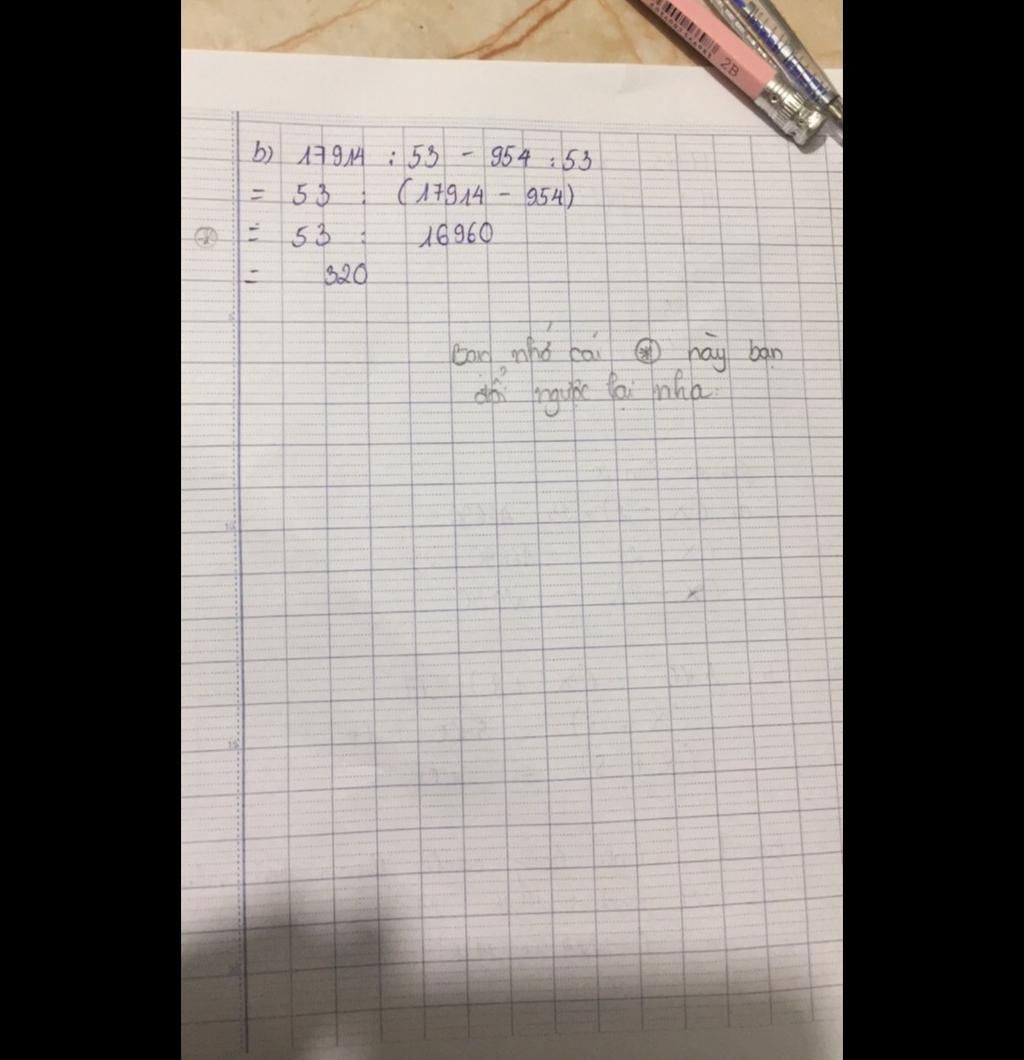 2B
b) 17914 : 53 - 954 : 53
= 53 : (17914 - 954)
* = 53 : 16960
= 320
Bạn nhớ cái * này bạn
đổi ngược lại nha